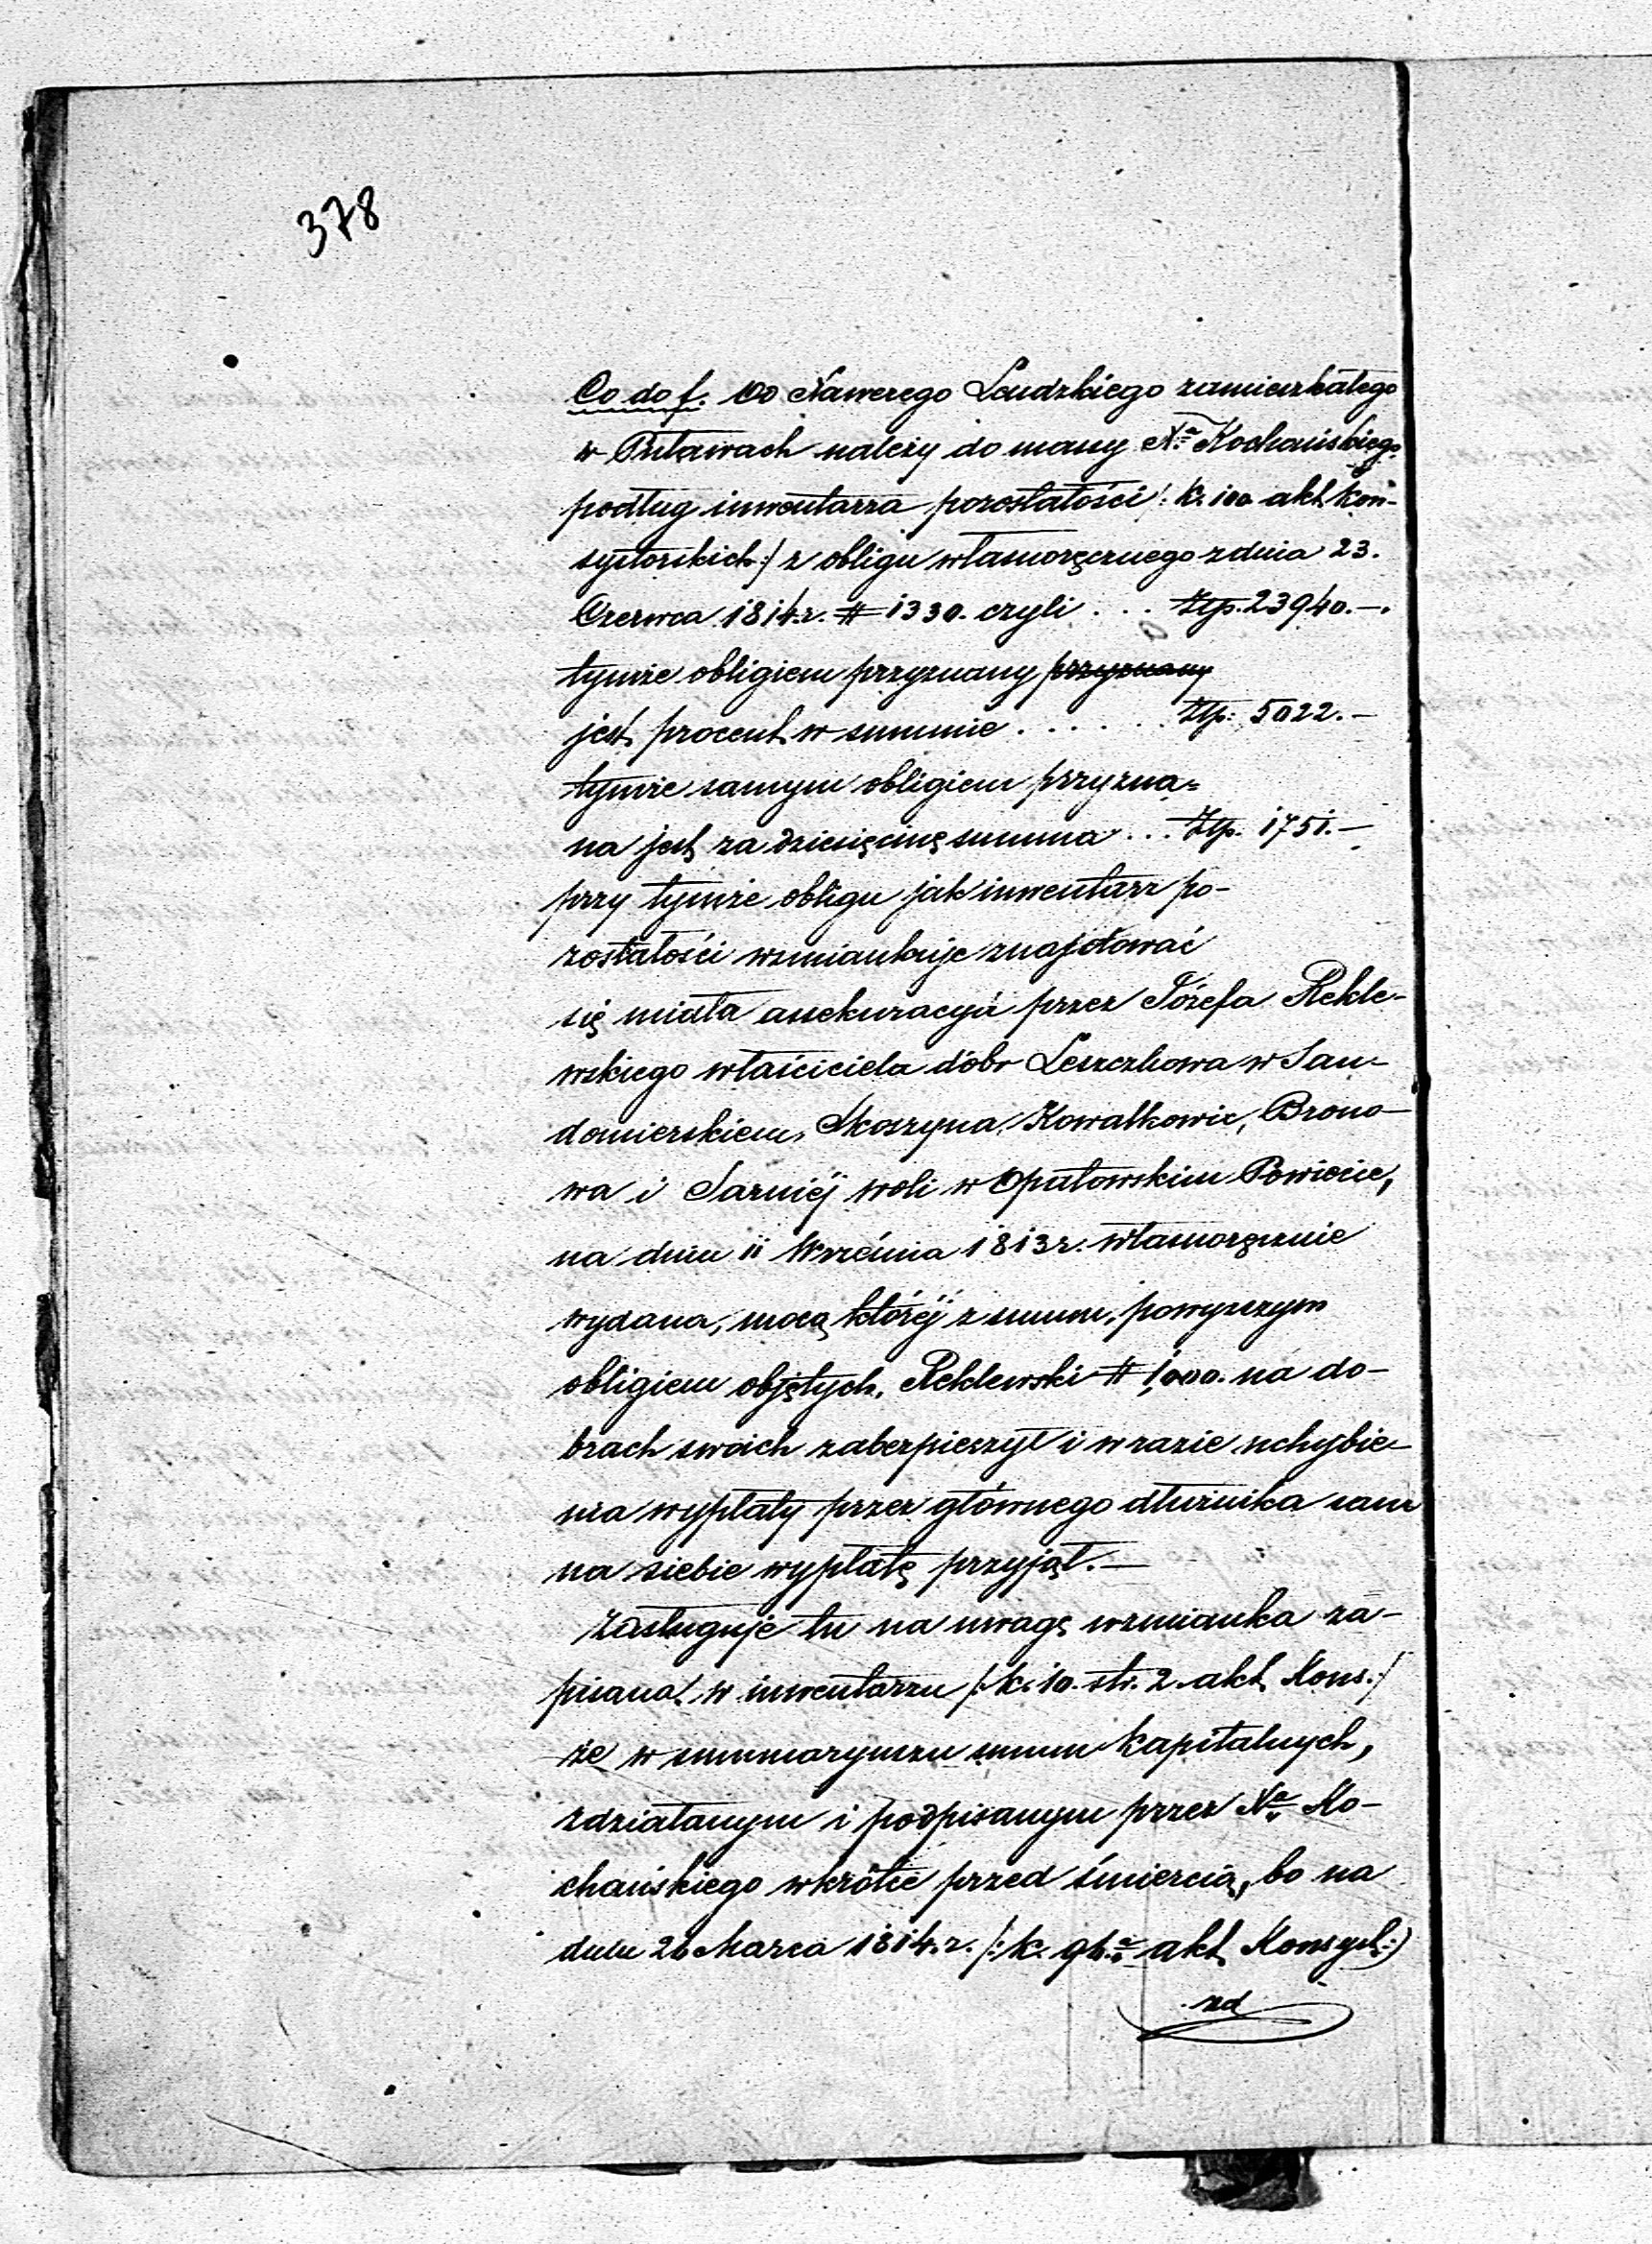 378
Co do f. Od Xawerego Leudzkiego zamieszkałego
w Puławach należy do massy Xa Kochańskiego
podług inwentarza pozostałości /: k. 100 akt kon-
systorskich :/ z obligu własnoręcznego z dnia 23.
Czerwca 1814 r. # 1330. czyli . . . Złp. 23940.—.
tymże obligiem przyznany przyznany
jest procent w summie . . . . . . Złp: 5022.—
tymże samym obligiem przyzna=
na jest za dziesięcinę summa . . . Złp. 1751.—
przy tymże obligu jak inwentarz po-
zostałości wzmiankuje znajdować
się miała assekuracyja przez Józefa Rekle-
wskiego właściciela dóbr Leszczkowa w San-
domierskiem, Skoszyna, Kowalkowic, Brono-
wa i Sarniéj woli w Opatowskim Powiecie,
na dniu 11 Września 1813 r. własnoręcznie
wydana, mocą któréj z summ, powyższym
obligiem objętych, Reklewski # 1,000. na do-
brach swoich zabezpieszył i w razie uchybie-
nia wypłaty przez głównego dłużnika sam
na siebie wypłatę przyjął.—
Zasługuje tu na uwagę wzmianka za-
pisana w inwentarzu /: k. 10. str. 2. akt Kons. :/
że w summaryuszu summ kapitalnych,
zdziałanym i podpisanym przez Xa Ko-
chańskiego wkrótce przed śmiercią, bo na
dniu 26 Marca 1814. r. /: k. 96. akt Konsyst :)
zd